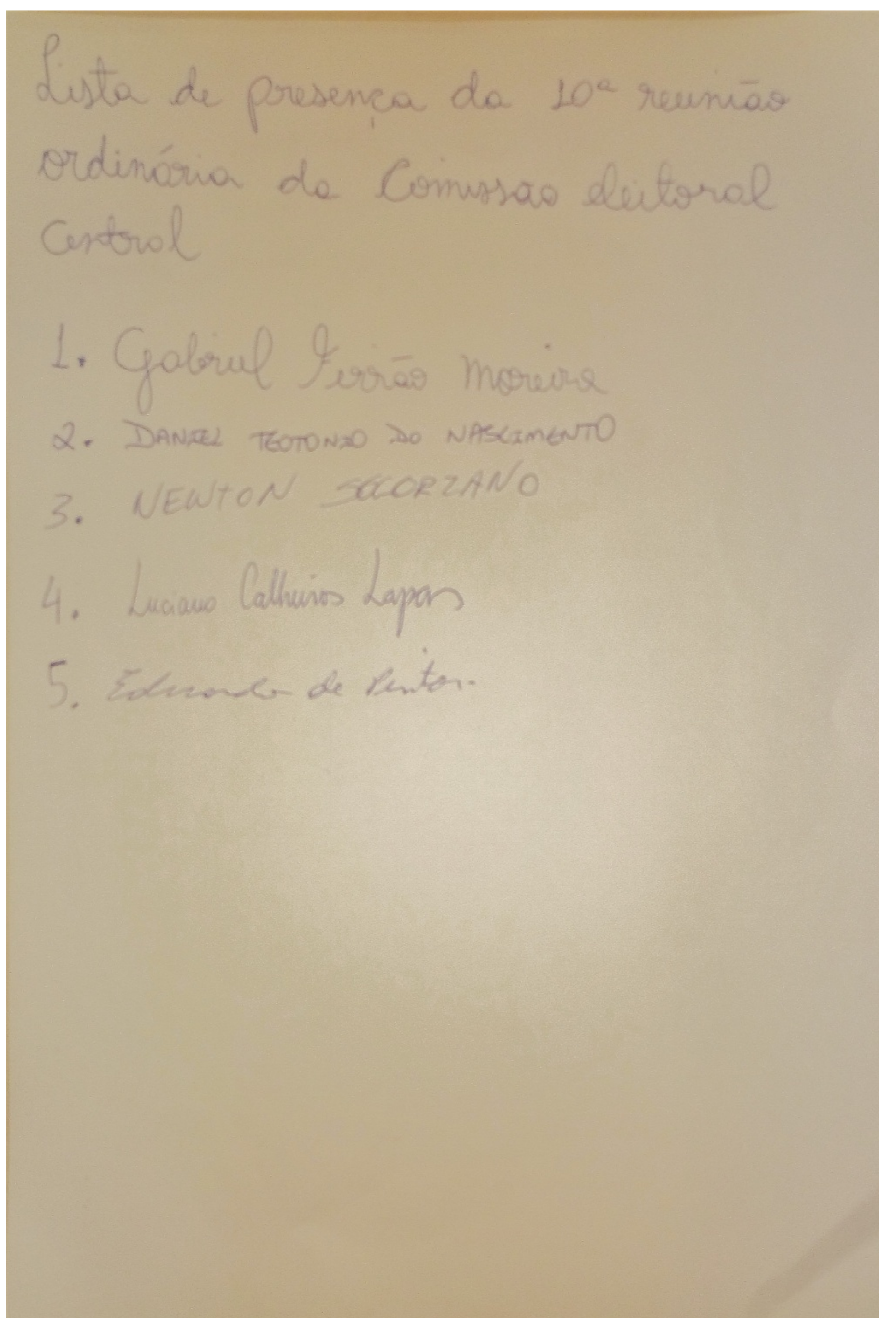 Lista de presença da 10ª reunião
ordinária da Comissão eleitoral
Central
1. Gabriel Ferrão Moreira
2. DANIEL TEOTONIO DO NASCIMENTO
3. NEWTON SOLORZANO
4. Luciano Calheiros Lapas
5. Eduardo de Pintor